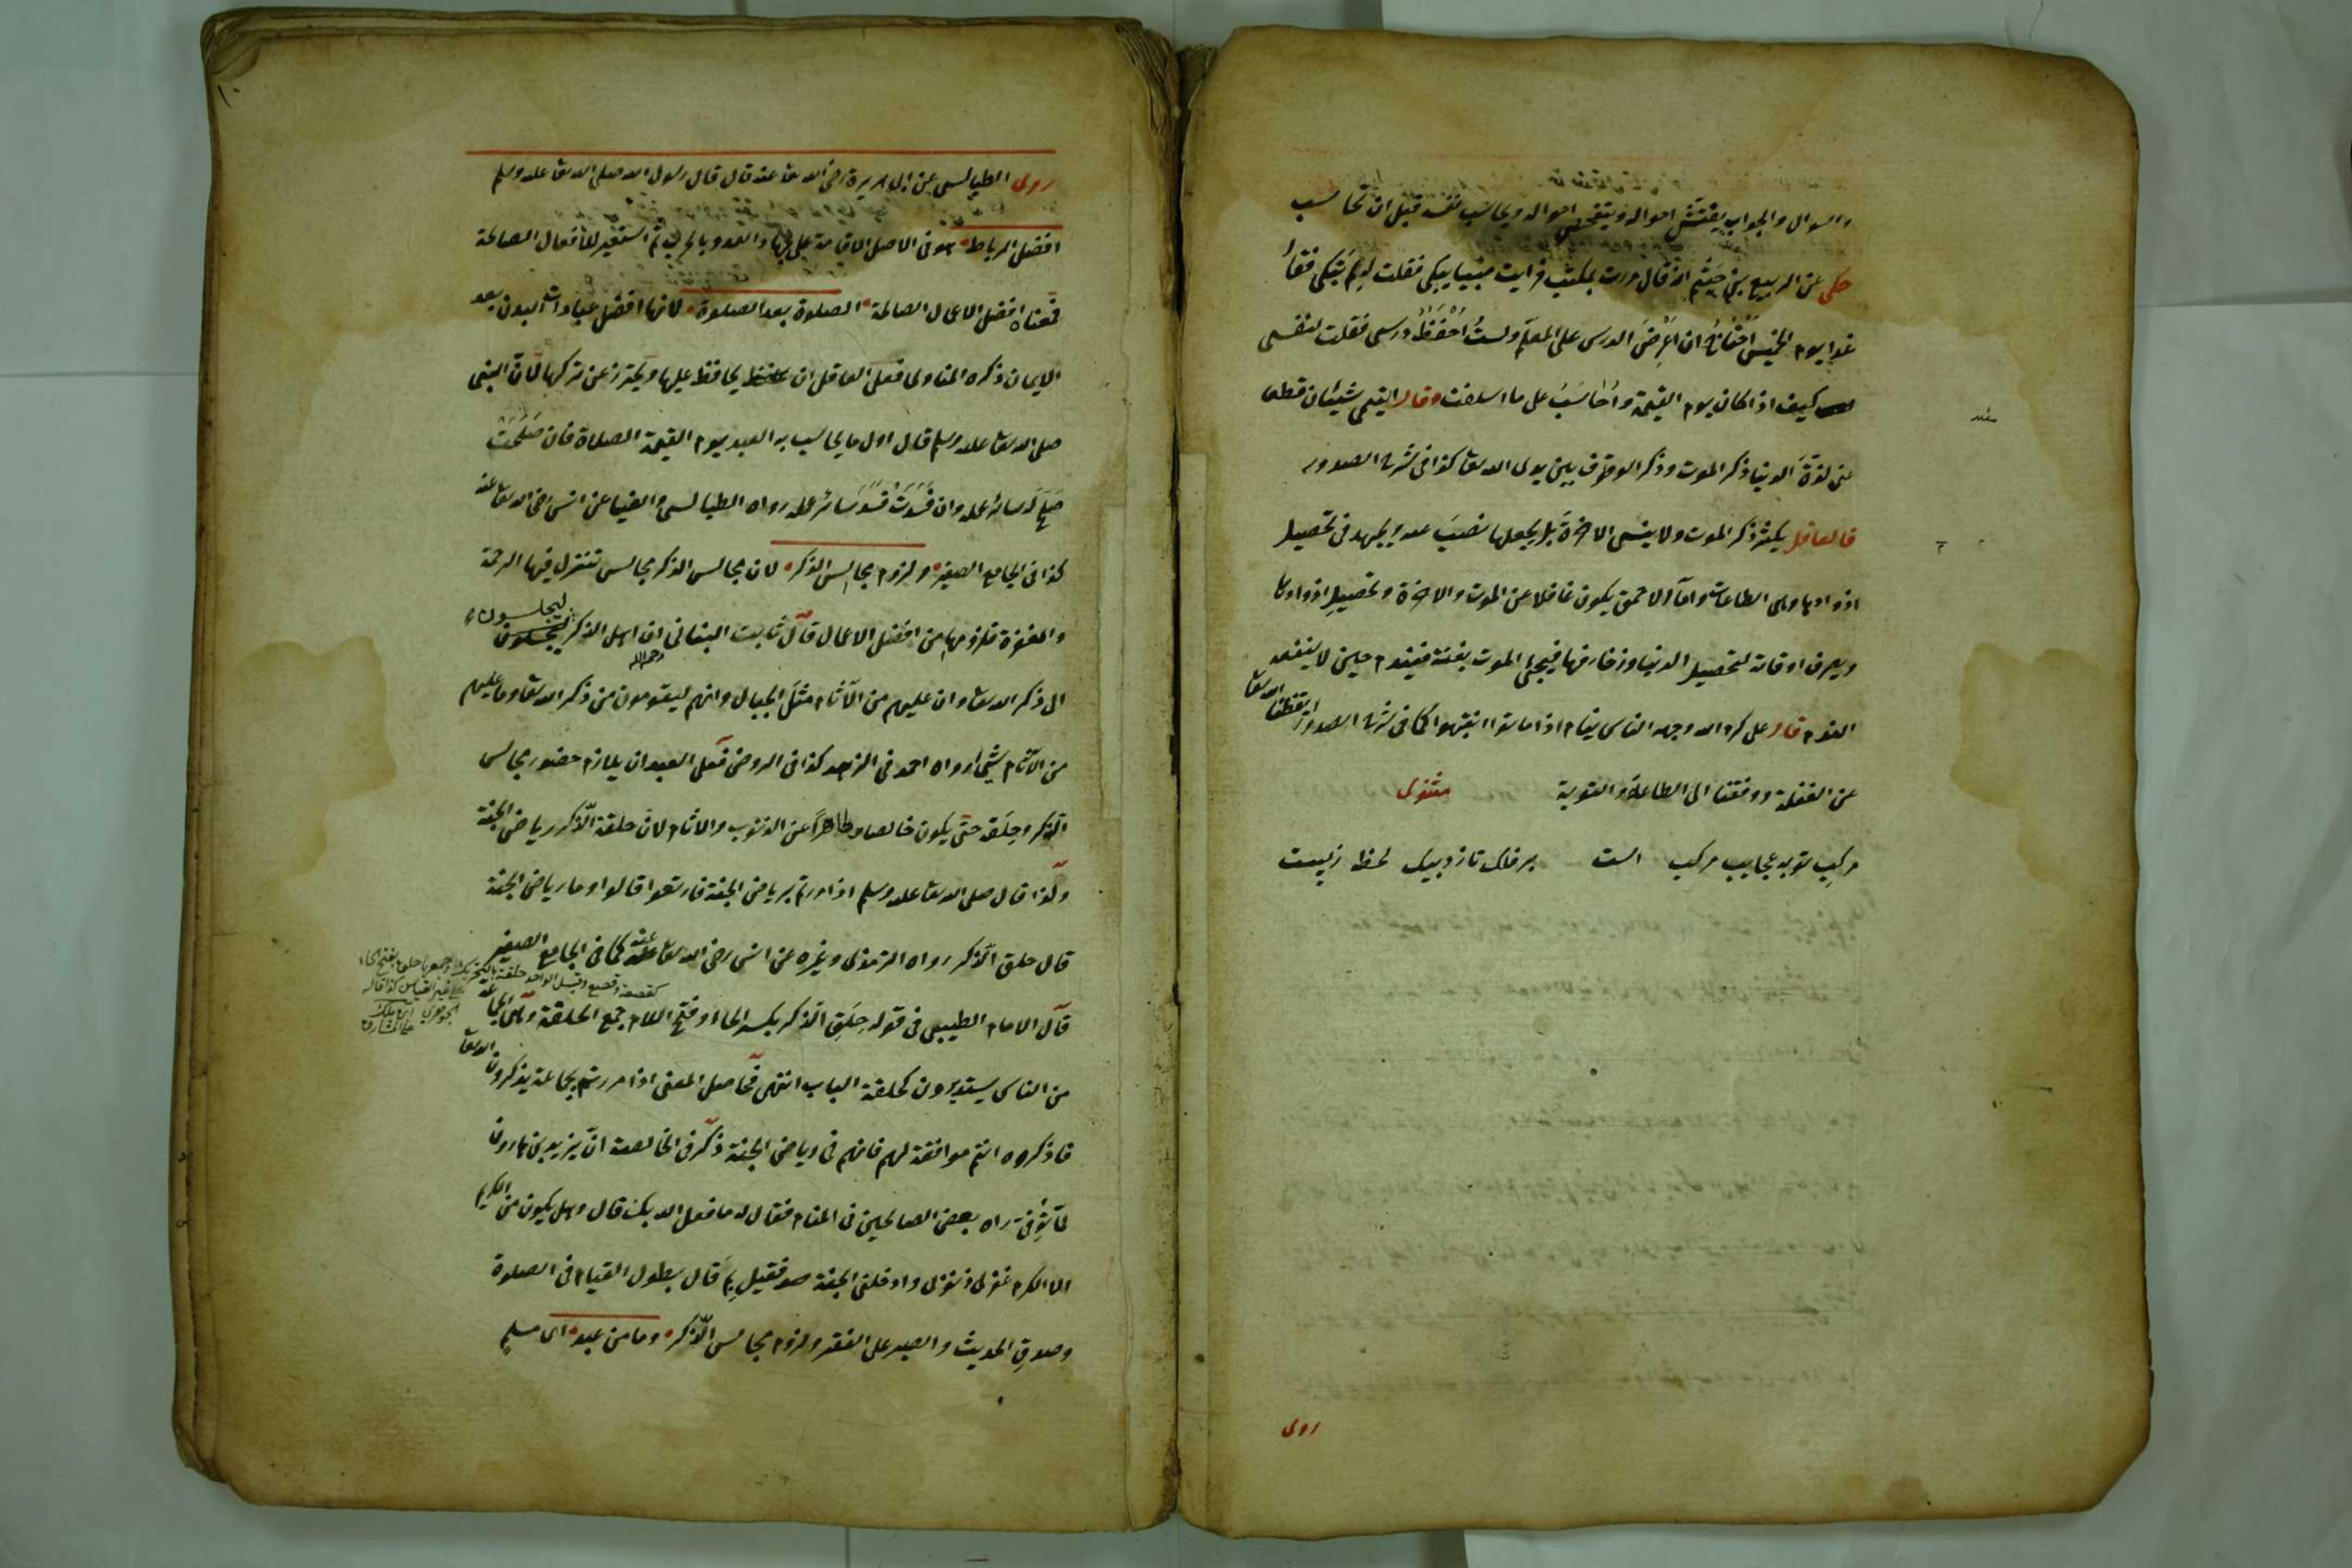 والسوال والجواب يفتش احواله ويتفحص احواله ويحاسب نفسه قبل ان تحاسب
حكى عن الربيع بن خيثم انه قال مررت بمكتب فرايت صبيا يبكى فقلت له لِمَ تبكى فقال
غدا يوم الخميس احتاج ان اعرض الدرس على المعلم ولستُ احفظُ درسى فقلت لنفسى
كيف اذا كان يوم القيمة واُحاسَبُ على ما اسلفت وقال التيمى شيئان قطعا
عنى لذة الدنيا ذكر الموت وذكر الوقوف بين يدى الله تعا كذا فى شرح الصدور
فالعاقل يكثر ذكر الموت ولا ينسى الاخرة بل يجعلها نصبَ عينه ويجهد فى تحصيل
ازوادها وهى الطاعات واما الاحمق يكون غافلا عن الموت والاخرة وتحصيل ازوادها
ويصرف اوقاته لتحصيل الدنيا وزخارفها فيجئ الموت بغتة فيندم حين لا ينفعه
الندم قال على كرم الله وجهه الناس نيام اذا ماتوا انتبهوا كما فى شرح الصدور ايقظنا الله تعا
عن الغفلة ووفقنا الى الطاعة والتوبة مثنوى
مركب توبه عجايب مركب است برفلك تازد بيك لحظه زپست
روى
روى الطيالسى عن ابى هريرة رضى الله تعا عنه قال قال رسول الله صلى الله تعا عليه وسلم
افضل الرباط هو فى الاصل الاقامة على جهاد العدو بالحرب ثم استعير للافعال الصالحة
فمعناه افضل الاعمال الصالحة الصلوة بعد الصلوة لانها افضل عبادات البدن بعد
الايمان ذكره المناوى فعلى العاقل ان يحافظ عليها ويحترز عن تركها لانّ النبى
صلى الله تعا عليه وسلم قال اول ما يحاسب به العبد يوم القيمة الصلاة فان صَلُحَتْ
صَلحَ له سائر عمله وان فَسَدَتْ فسد سائر عمله رواه الطيالسى والضيا عن انس رضى الله تعا عنه
كذا فى الجامع الصغير ولزوم مجالس الذكر لان مجالس الذكر مجالس تتنزل فيها الرحمة
والمغفرة فلزومها من افضل الاعمال قال ثابت البنانى رحمه الله ان اهل الذكر ليجلسون
الى ذكر الله تعا وان عليهم من الآثام مثلَ الجبال وانهم ليقومون من ذكر الله تعا وما عليهم
من الآثام شئ رواه احمد فى الزهد كذا فى الروض فعلى العبد ان يلازم حضور مجالس
الذكر وحلَقه حتى يكون خالصا وطاهراً عن الذنوب والاثام لان حلقة الذكر رياض الجنة
ولذا قال صلى الله تعا عليه وسلم اذا مررتم برياض الجنة فارتعوا قالوا وما رياض الجنة
قال حلق الذكر رواه الترمذى وغيره عن انس رضى الله تعا عنه كما فى الجامع الصغير
قال الامام الطيبى فى قوله حِلَق الذكر بكسر الحاء وفتح اللام جمع الحلقة وهى الجماعة
من الناس يستديرون كحلقة الباب انتهى فحاصل المعنى اذا مررتم بجماعة يذكرون الله تعا
فاذكروه انتم موافقة لهم فانهم فى رياض الجنة ذكر فى الخالصة ان يزيد بن هارون
لما تُوُفى راه بعض الصالحين فى المنام فقال له ما فعل الله بك قال وهل يكون من الكريم
الا الكرم غفر لى ذنوبى وادخلنى الجنة فقيل بِمَ قال بطول القيام فى الصلوة
وصدق الحديث والصبر على الفقر ولزوم مجالس الذكر وما من عبد اى مسلم